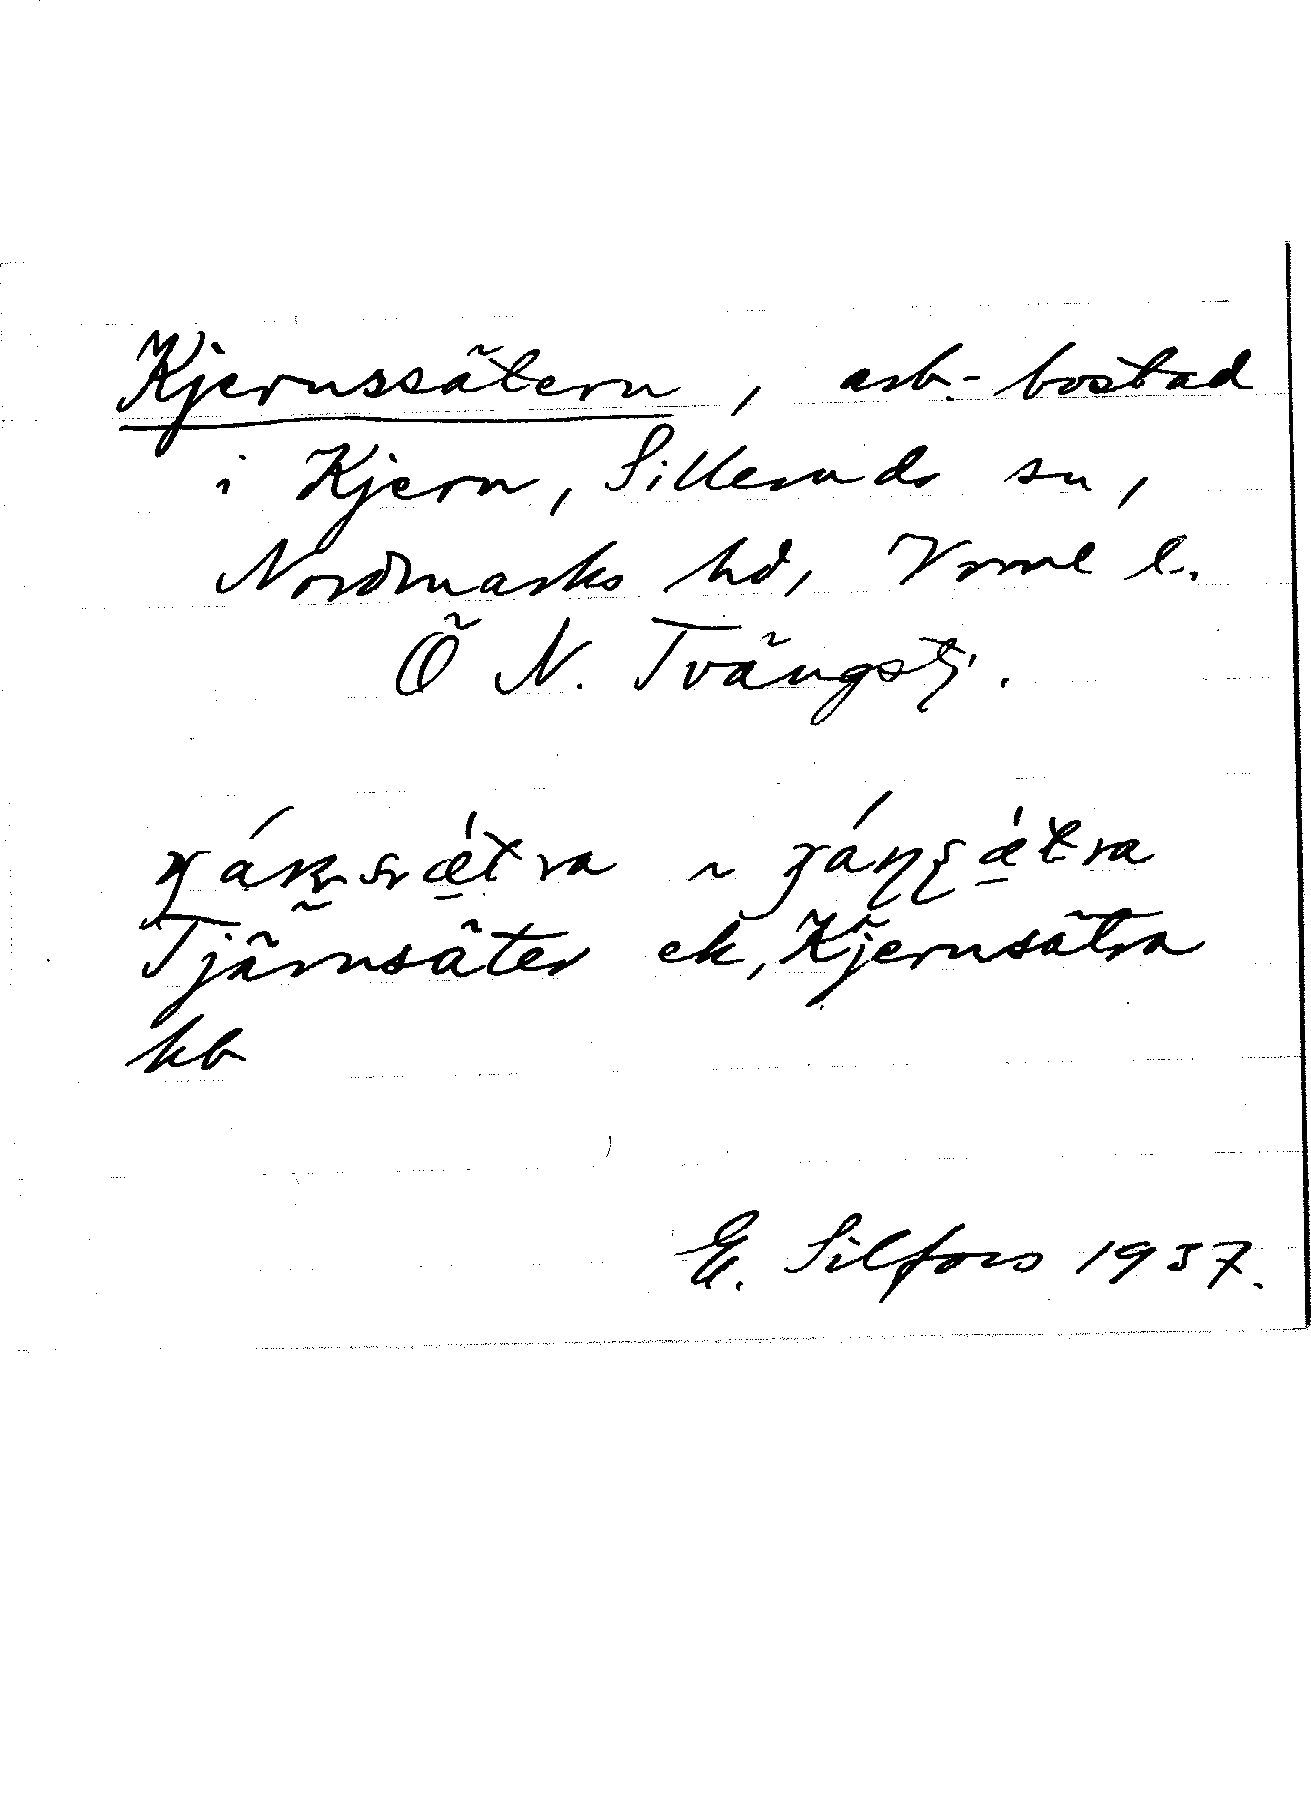 Kjernssätern, arb.-bostad
i Kjern, Silleruds sn,
Nordmarks hd, Vrml l.
Ö N. Tvängstj.
Tjärnsäter ek, Kjernsätra
kb
E. Silfors 1937.